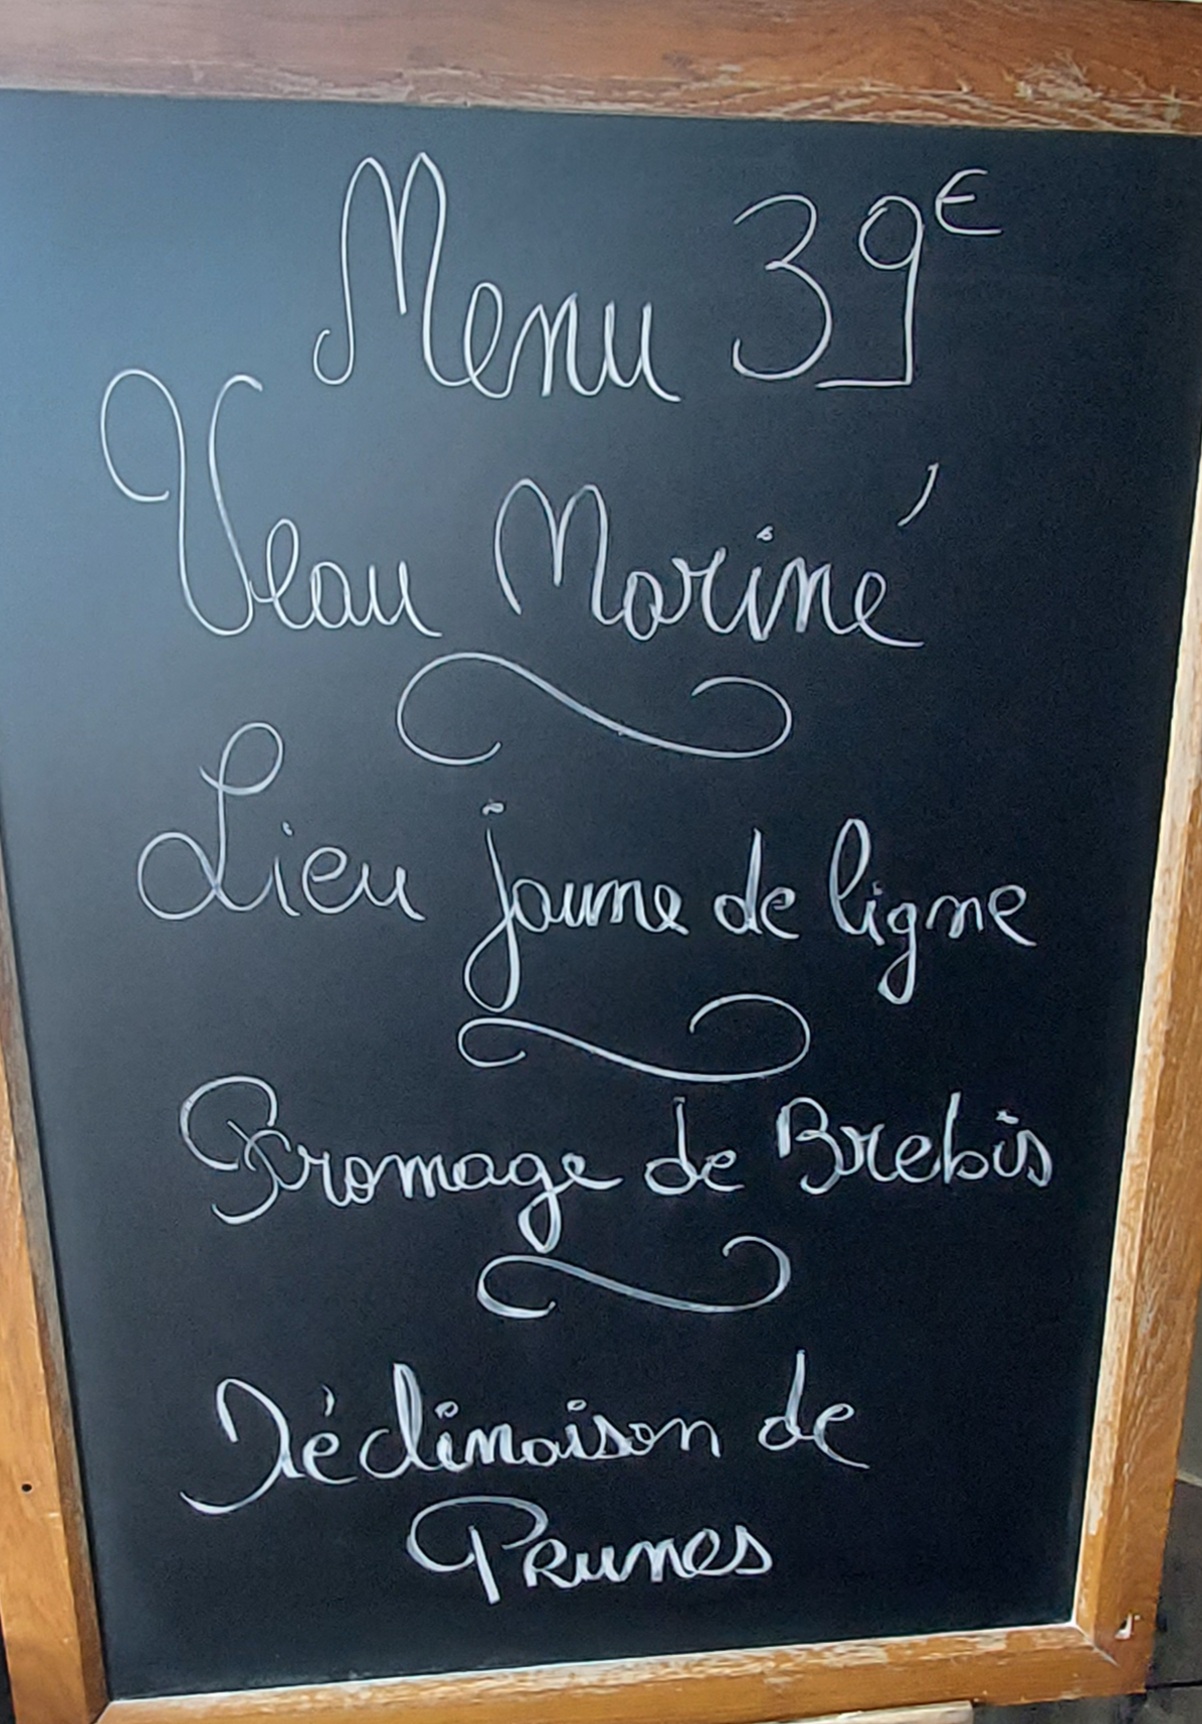 Menu 39€
Veau Mariné
Lieu jaune de ligne
Fromage de Brebis
Déclinaison de
Prunes